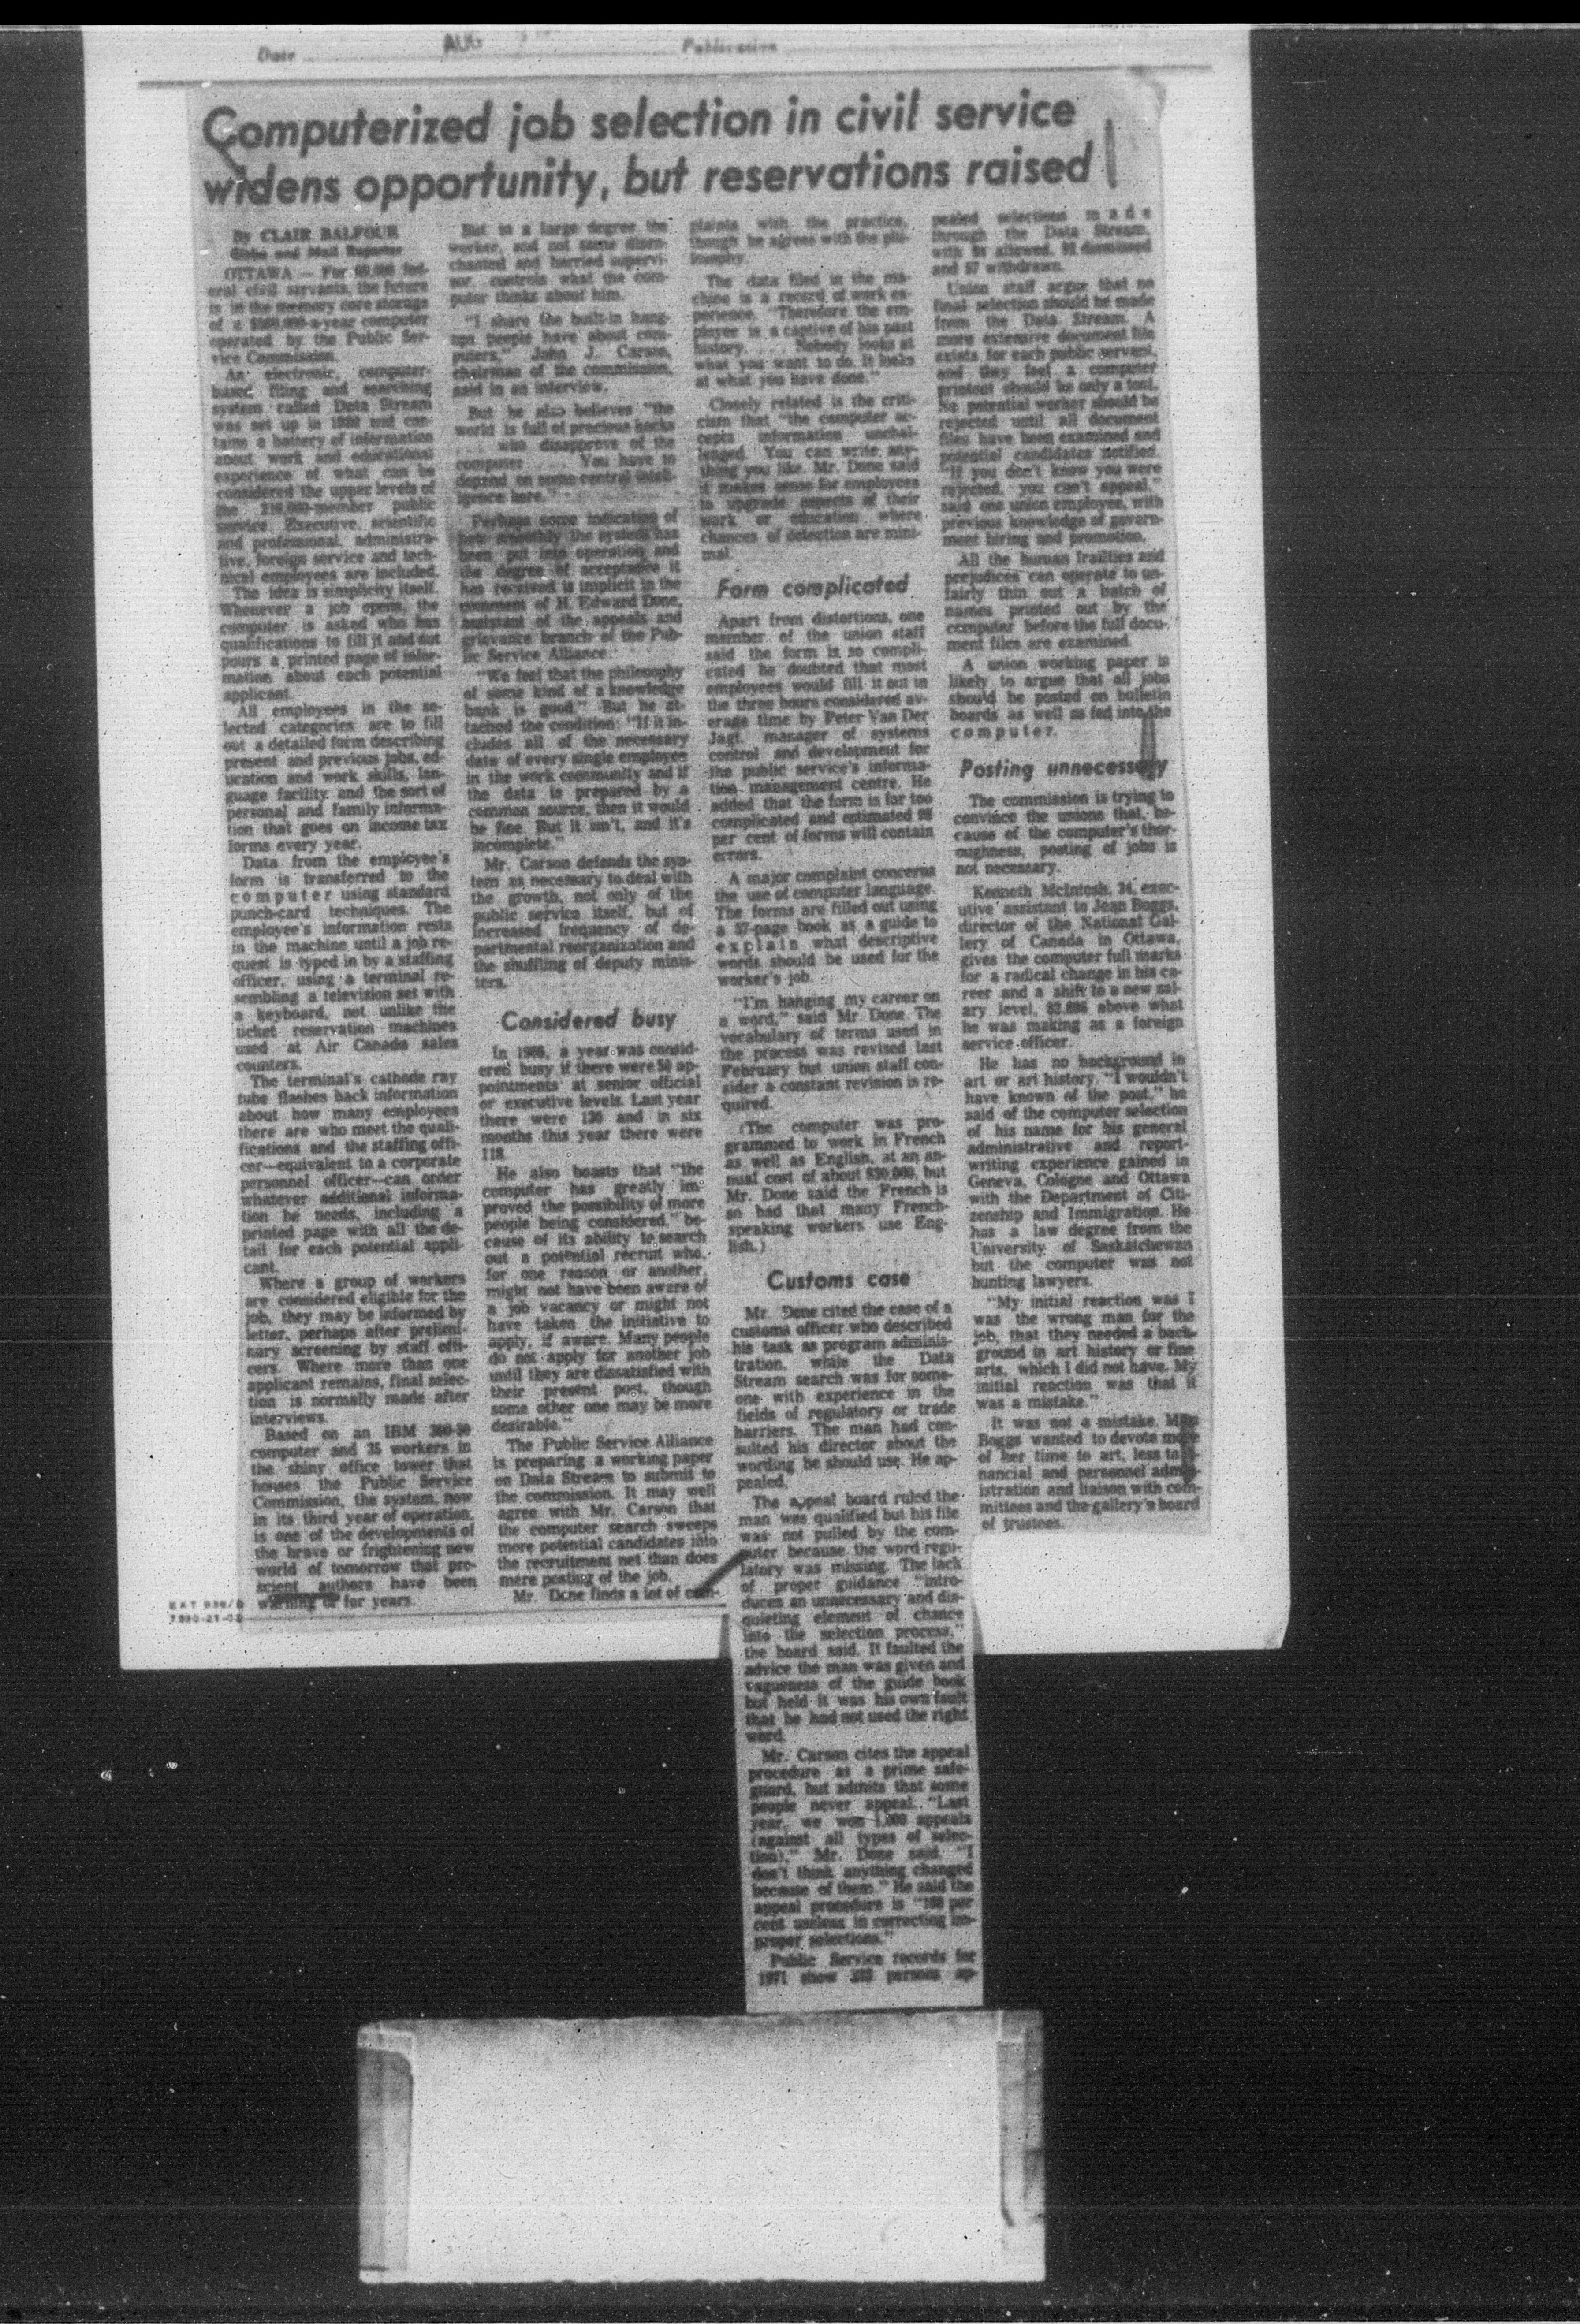 Date AUG Publication
Computerized job selection in civil service
widens opportunity, but reservations raised
By CLAIR BALFOUR
Globe and Mail Reporter
OTTAWA — For 60,000 fed-
eral civil servants, the future
is in the memory core storage
of a computer
operated by the Public Ser-
vice Commission.
An electronic, computer-
based filing and searching
system called Data Stream
was set up in and con-
tains a battery of information
about work and educational
experience of what can be
considered the upper levels of
the public
service. Executive, scientific
and professional, administra-
tive, foreign service and tech-
nical employees are included.
The idea is simplicity itself.
Whenever a job opens, the
computer is asked who has
qualifications to fill it and out
pours a printed page of infor-
mation about each potential
applicant.
All employees in the se-
lected categories are to fill
out a detailed form describing
present and previous jobs, ed-
ucation and work skills, lan-
guage facility and the sort of
personal and family informa-
tion that goes on income tax
forms every year.
Data from the employee's
form is transferred to the
computer using standard
punch-card techniques. The
employee's information rests
in the machine until a job re-
quest is typed in by a staffing
officer, using a terminal re-
sembling a television set with
a keyboard, not unlike the
ticket reservation machines
used at Air Canada sales
counters.
The terminal's cathode ray
tube flashes back information
about how many employees
there are who meet the quali-
fications and the staffing offi-
cer—equivalent to a corporate
personnel officer—can order
whatever additional informa-
tion he needs, including a
printed page with all the de-
tail for each potential appli-
cant.
Where a group of workers
are considered eligible for the
job, they may be informed by
letter, perhaps after prelimi-
nary screening by staff offi-
cers. Where more than one
applicant remains, final selec-
tion is normally made after
interviews.
Based on an IBM 360-50
computer and 35 workers in
the shiny office tower that
houses the Public Service
Commission, the system, now
in its third year of operation,
is one of the developments of
the brave or frightening new
world of tomorrow that pre-
scient authors have been
warning of for years.
But to a large degree the
worker, and not some disen-
chanted and harried supervi-
sor, controls what the com-
puter thinks about him.
"I share the built-in hang-
ups people have about com-
puters," John J. Carson,
chairman of the commission,
said in an interview.
But he also believes "the
world is full of precious hocks
. . . who disapprove of the
computer . . . You have to
depend on some central intell-
igence here."
Perhaps some indication of
how smoothly the system has
been put into operation and
the degree of acceptance it
has received is implicit in the
comment of H. Edward Done,
assistant of the appeals and
grievance branch of the Pub-
lic Service Alliance.
"We feel that the philosophy
of some kind of a knowledge
bank is good." But he at-
tached the condition: "If it in-
cludes all of the necessary
data of every single employee
in the work community and if
the data is prepared by a
common source, then it would
be fine. But it isn't, and it's
incomplete."
Mr. Carson defends the sys-
tem as necessary to deal with
the growth, not only of the
public service itself, but of
increased frequency of de-
partmental reorganization and
the shuffling of deputy minis-
ters.
Considered busy
In 1966, a year was consid-
ered busy if there were 50 ap-
pointments at senior official
or executive levels. Last year
there were 130 and in six
months this year there were
118.
He also boasts that "the
computer has greatly im-
proved the possibility of more
people being considered," be-
cause of its ability to search
out a potential recruit who,
for one reason or another,
might not have been aware of
a job vacancy or might not
have taken the initiative to
apply, if aware. Many people
do not apply for another job
until they are dissatisfied with
their present post, though
some other one may be more
desirable."
The Public Service Alliance
is preparing a working paper
on Data Stream to submit to
the commission. It may well
agree with Mr. Carson that
the computer search sweeps
more potential candidates into
the recruitment net than does
mere posting of the job.
Mr. Done finds a lot of com-
plaints with the practice,
though he agrees with the phi-
losophy.
The data filed in the ma-
chine is a record of work ex-
perience. "Therefore the em-
ployee is a captive of his past
history. . . . Nobody looks at
what you want to do. It looks
at what you have done."
Closely related is the criti-
cism that "the computer ac-
cepts information unchal-
lenged. You can write any-
thing you like. Mr. Done said
it makes sense for employees
to upgrade aspects of their
work or education where
chances of detection are mini-
mal.
Form complicated
Apart from distortions, one
member of the union staff
said the form is so compli-
cated he doubted that most
employees would fill it out in
the three hours considered av-
erage time by Peter Van Der
Jagt, manager of systems
control and development for
the public service's informa-
tion management centre. He
added that the form is far too
complicated and estimated
per cent of forms will contain
errors.
A major complaint concerns
the use of computer language.
The forms are filled out using
a 57-page book as a guide to
explain what descriptive
words should be used for the
worker's job.
"I'm hanging my career on
a word," said Mr. Done. The
vocabulary of terms used in
the process was revised last
February but union staff con-
sider a constant revision is re-
quired.
(The computer was pro-
grammed to work in French
as well as English, at an an-
nual cost of about $30,000, but
Mr. Done said the French is
so bad that many French-
speaking workers use Eng-
lish.)
Customs case
Mr. Done cited the case of a
customs officer who described
his task as program adminis-
tration, while the Data
Stream search was for some-
one with experience in the
fields of regulatory or trade
barriers. The man had con-
sulted his director about the
wording he should use. He ap-
pealed.
The appeal board ruled the
man was qualified but his file
was not pulled by the com-
puter because the word regu-
latory was missing. The lack
of proper guidance "intro-
duces an unnecessary and dis-
quieting element of chance
into the selection process,"
the board said. It faulted the
advice the man was given and
vagueness of the guide book
but held it was his own fault
that he had not used the right
word.
Mr. Carson cites the appeal
procedure as a prime safe-
guard, but admits that some
people never appeal. "Last
year, we won 1,000 appeals
(against all types of selec-
tion)," Mr. Done said. "I
don't think anything changed
because of them." He said the
appeal procedure is "100 per
cent useless in correcting im-
proper selections."
Public Service records for
1971 show persons ap-
pealed selections made
through the Data Stream,
with allowed, 92 dismissed
and 57 withdrawn.
Union staff argue that no
final selection should be made
from the Data Stream. A
more extensive document file
exists for each public servant,
and they feel a computer
printout should be only a tool.
No potential worker should be
rejected until all document
files have been examined and
potential candidates notified.
"If you don't know you were
rejected, you can't appeal,"
said one union employee, with
previous knowledge of govern-
ment hiring and promotion.
All the human frailties and
prejudices can operate to un-
fairly thin out a batch of
names printed out by the
computer before the full docu-
ment files are examined.
A union working paper is
likely to argue that all jobs
should be posted on bulletin
boards as well as fed into the
computer.
Posting unnecessary
The commission is trying to
convince the unions that, be-
cause of the computer's thor-
oughness, posting of jobs is
not necessary.
Kenneth McIntosh, 34, exec-
utive assistant to Jean Boggs,
director of the National Gal-
lery of Canada in Ottawa,
gives the computer full marks
for a radical change in his ca-
reer and a shift to a new sal-
ary level, above what
he was making as a foreign
service officer.
He has no background in
art or art history. "I wouldn't
have known of the post," he
said of the computer selection
of his name for his general
administrative and report-
writing experience gained in
Geneva, Cologne and Ottawa
with the Department of Citi-
zenship and Immigration. He
has a law degree from the
University of Saskatchewan
but the computer was not
hunting lawyers.
"My initial reaction was I
was the wrong man for the
job, that they needed a back-
ground in art history or fine
arts, which I did not have. My
initial reaction was that it
was a mistake."
It was not a mistake. Miss
Boggs wanted to devote more
of her time to art, less to fi-
nancial and personnel admin-
istration and liaison with com-
mittees and the gallery's board
of trustees.
EXT
7530-21-02